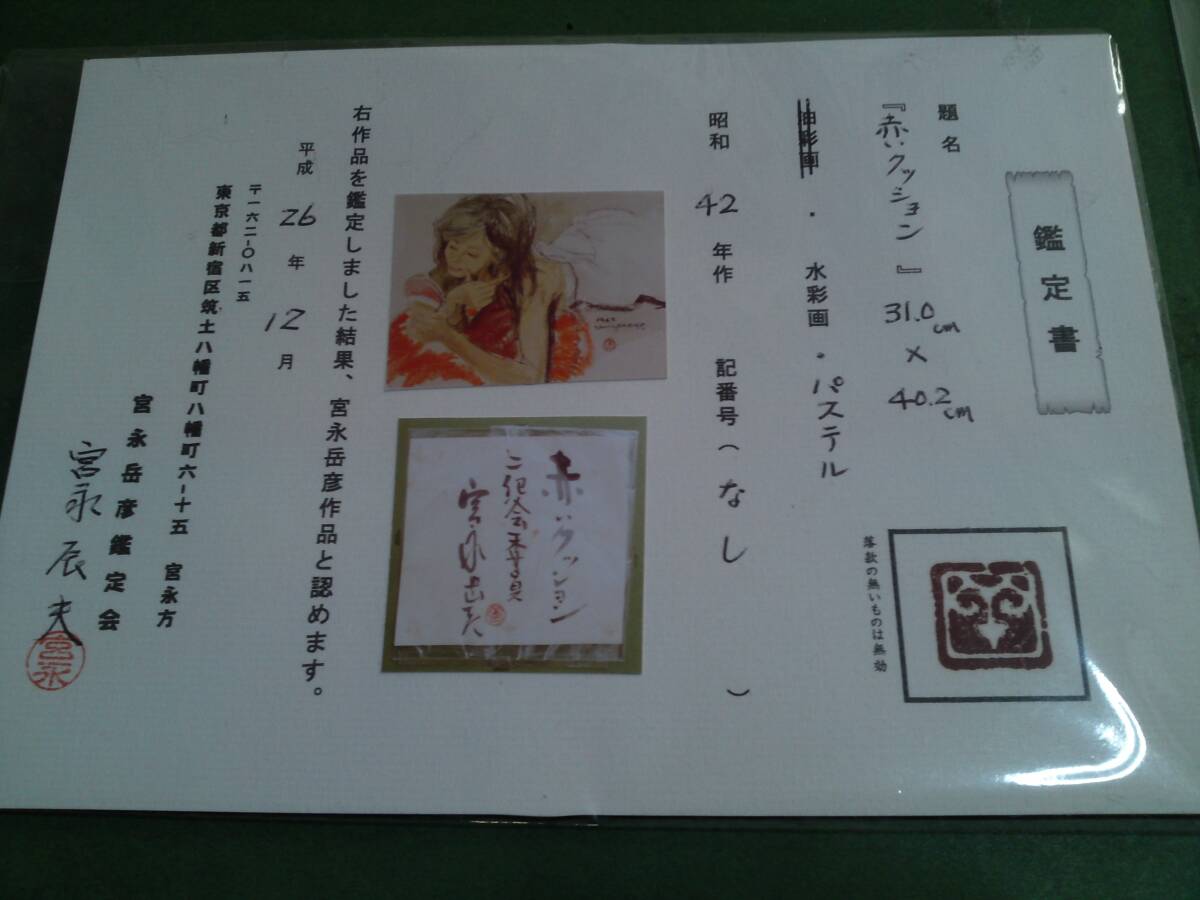 鑑定書
題名
『赤いクッション』 31.0cm × 40.2cm
油彩画 ・ 水彩画 ・ パステル
昭和 42 年作 記番号(なし)
赤いクッション
二紀会委員
宮永岳彦
右作品を鑑定しました結果、宮永岳彦作品と認めます。
平成 26 年 12 月
〒一六二-〇八一五
東京都新宿区筑土八幡町八幡町六-十五 宮永方
宮永岳彦鑑定会
宮永辰夫
宮永
落款の無いものは無効